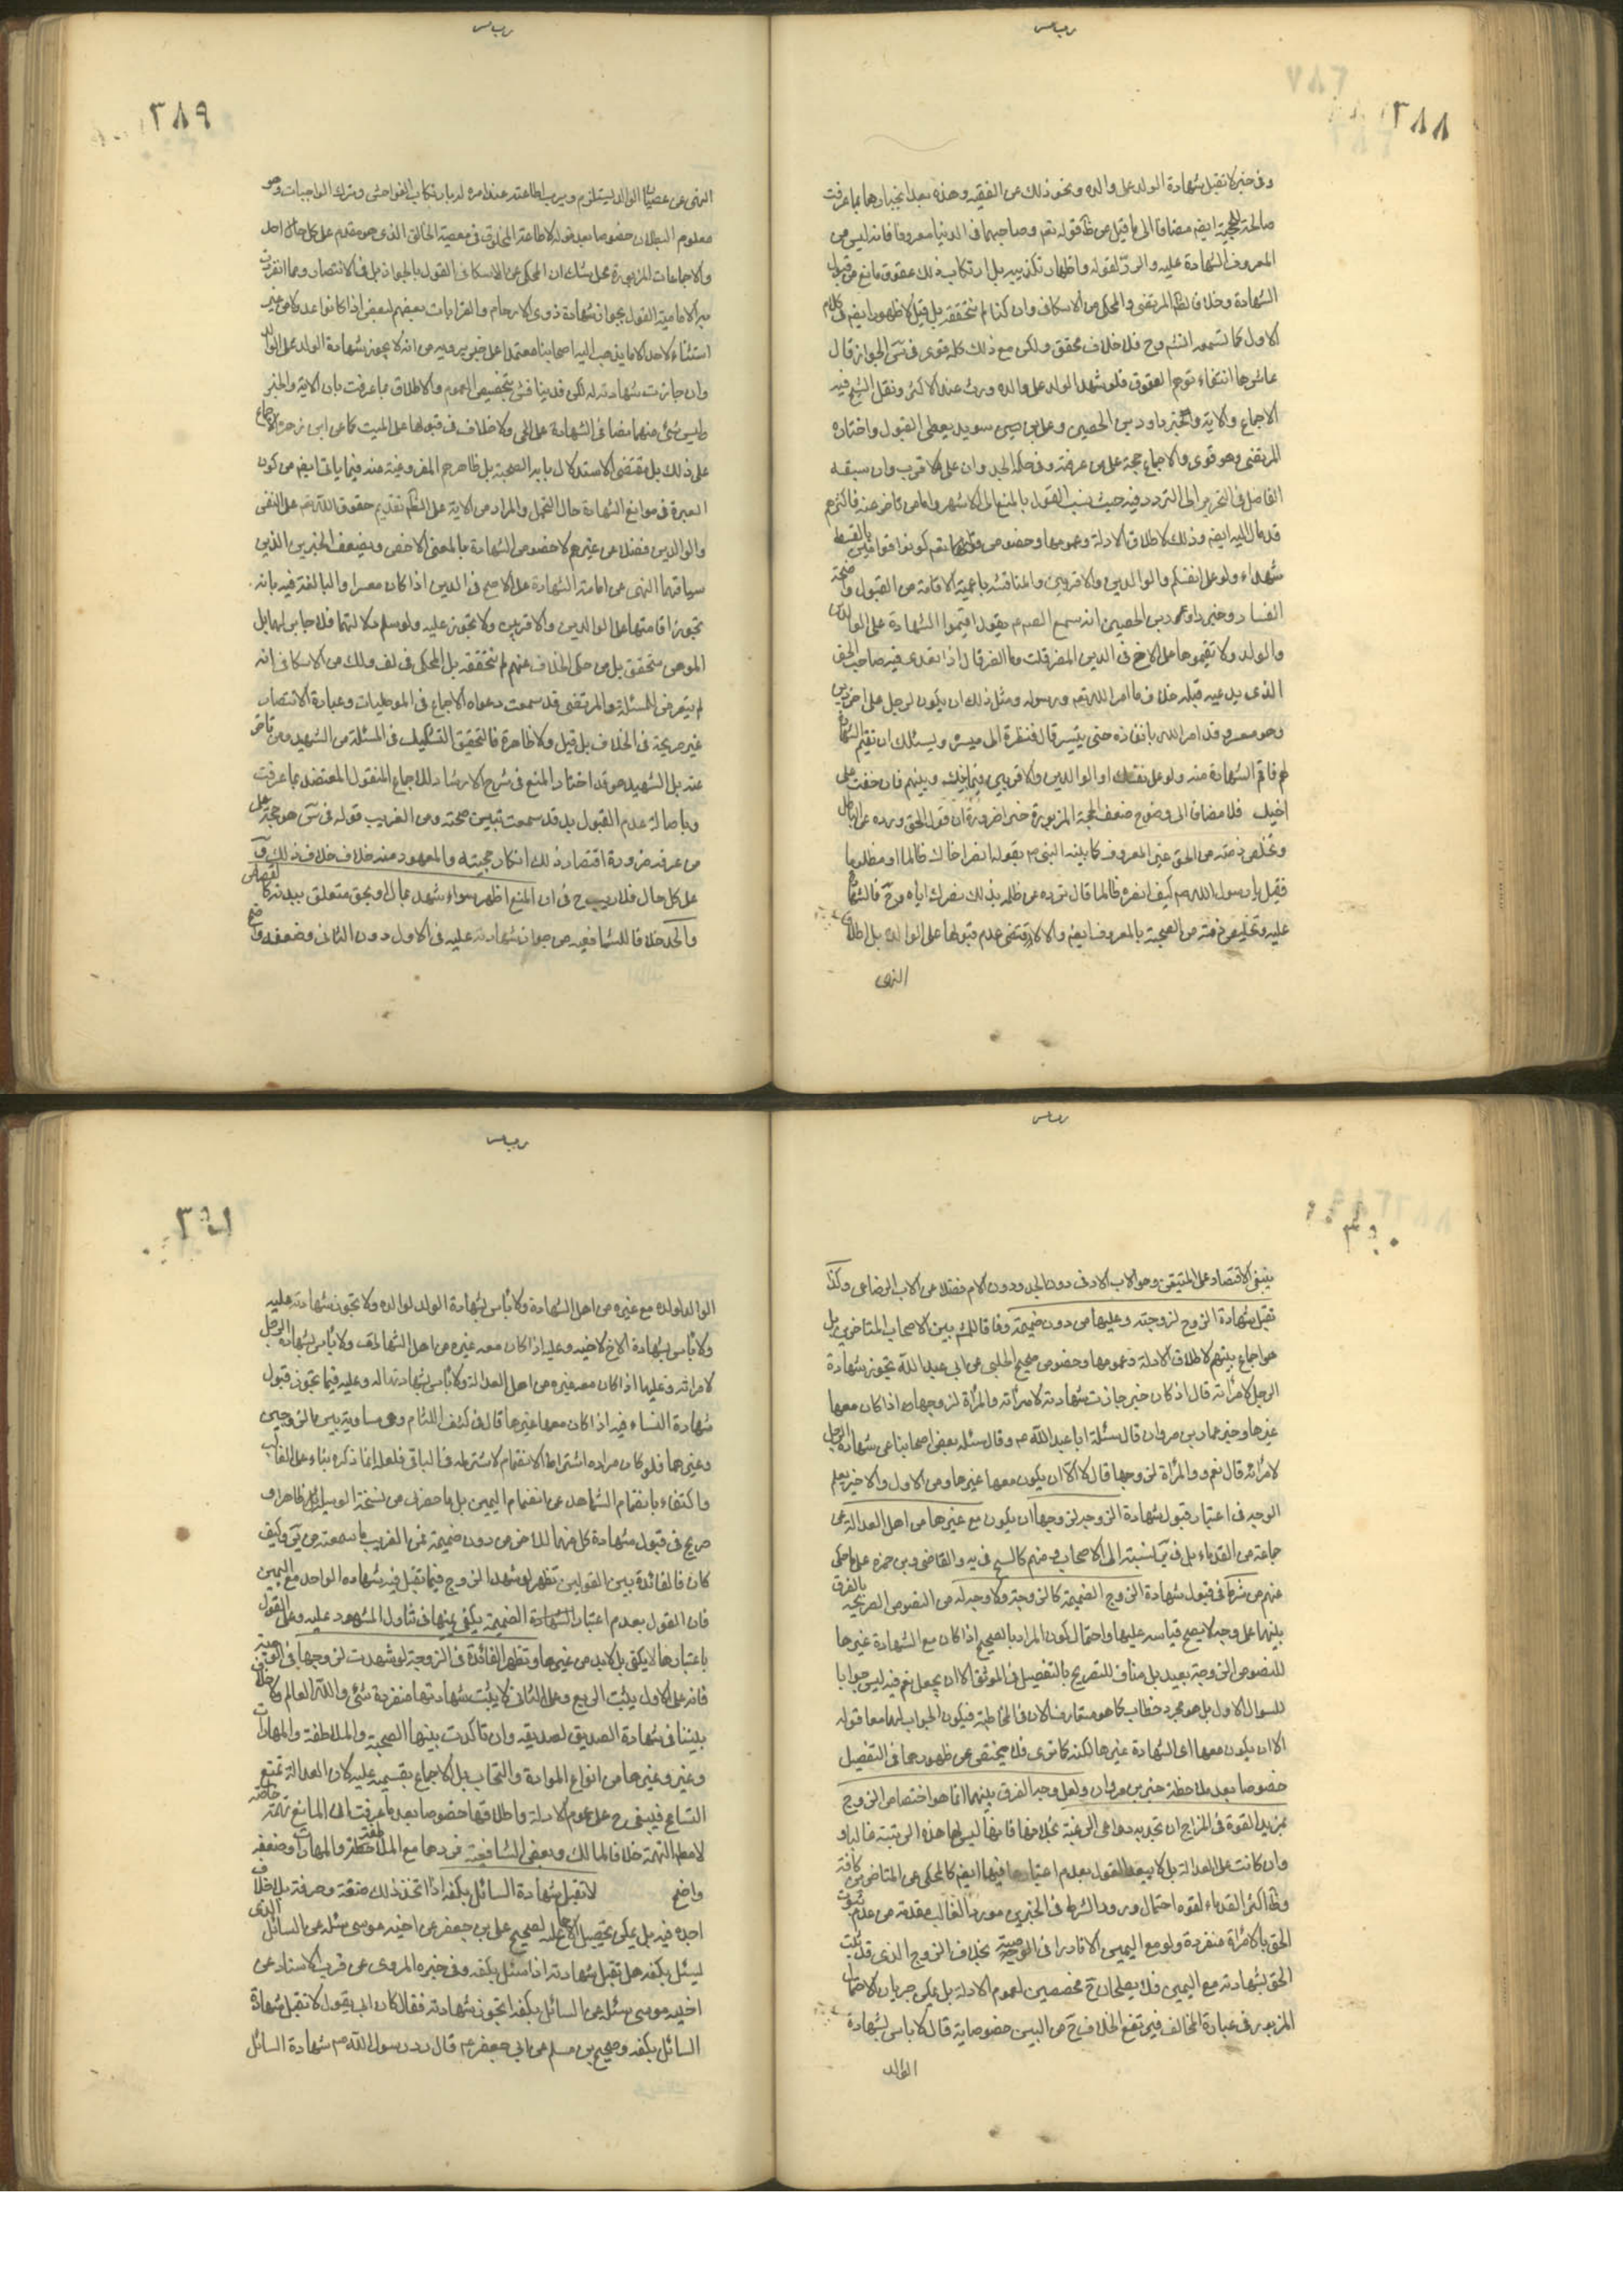 ٣٨٨
وفى خبر لا تقبل شهادة الولد على والده ونحو ذلك عن الفقيه وهذه بعد انجبارها بما عرفت
صالحة للحجية ايضم مضافا الى ما قيل من ظ قوله تعم وصاحبهما فى الدنيا معروفا فانه ليس من
المعروف الشهادة عليه والرد لقوله واظهار تكذيبه بل ارتكاب ذلك عقوق مانع من قبول
الشهادة وخلافا للمرتضى والمحكى عن الاسكافى وان كنا لم نتحققه بل قيل لا ظهور ايضم فى كلام
الاول كما تسمعه انشم وح فلا خلاف محقق ولكن مع ذلك كله قوى فى س الجواز قال
الاجماع والاية وخبر داود بن الحصين وعلى بن سويد يعطى القبول واختاره
المرتضى وهو قوى والاجماع حجة على من عرفه وفى حكمه الجد وان على الاقرب وان سبقه
الفاضل فى التحرير الى التردد فيه حيث نسب القول بالمنع الى الاشهر واما من تاخر عنه فاكثرهم
قد مال اليه ايضم وذلك لاطلاق الادلة وعمومها وخصوص قوله تعم كونوا قوامين بالقسط
شهداء ولو على انفسكم والوالدين والاقربين والمناقشه باعمية الاقامة من القبول
الفساد وخبر داود بن الحصين انه سمع الصم يقول اقيموا الشهادة على الوالدين
والولد ولا تقيموها على الاخ فى الدين الضر قلت وما الضر قال اذا تعدى فيه صاحب الحق
الذى يدعيه قبله خلاف ما امر الله تعم ورسوله ومثل ذلك ان يكون لرجل على اخر دين
وهو معسر وقد امر الله بانظاره حتى ييسر قال فنظرة الى ميسرة ويسئلك ان تقيم الشهادة
فاقم الشهادة منه ولو على نفسك او الوالدين والاقربين فيما بينك وبينهم فان خفت على
اخيك فلا مضافا الى وضوح ضعف الحجة المزبورة خبر ضرورة ان قول الحق ورده عن الباطل
وتخليص ذمته من الحق عين المعروف كما بينه النبى ص بقوله انصر اخاك ظالما او مظلوما
فقيل يا رسول الله ص كيف انصره ظالما قال ترده عن ظلمه فذلك نصرك اياه وح فالشهادة
عليه وتخليص ذمته من الصحبة بالمعروف ايضم والا لاقتضى عدم قبولها على الوالدة بل اطلاق
النهى
٣٨٩
النهى عن عصيان الوالد يستلزم وجوب اطاعته عند امره له بارتكاب الفواحش وترك الواجبات وهو
معلوم البطلان خصوصا بعد قوله لا طاعة للمخلوق فى معصية الخالق الذى هو مقدم على كل حال احد
والاجماعات المزبورة محل شك ان المحكى عن الاسكافى القول بالجواز بل فى الانتصار ومما انفردت
به الامامية القول بجواز شهادة ذوى الارحام والقرابات بعضهم لبعض اذا كانوا عدولا من غير
استثناء لاحد الا ما يذهب اليه اصحابنا معتمدا على خبر يروونه من انه لا يجوز شهادة الولد على الوالد
وان جازت شهادته له لكن قد يناقش بتخصيص العموم والاطلاق بما عرفت بان الاية والخبر
وليس شئ منهما نصا فى الشهادة على الحى ولا خلاف فى قبولها على الميت كما عن ابن زهرة الاجماع
على ذلك بل مقتضى الاستدلال باية الصحبة بل ظاهرهم المفروغية منه فيما ياتى ايضم من كون
العبرة فى موانع الشهادة حال التحمل والمراد من الاية على الظم تقديم حقوق الله تعم على النفس
والوالدين فضلا عن غيرهم لا خصوص الشهادة بالمعنى الاخص وبضعف الخبرين الذين
سياقهما النهى عن اقامة الشهادة على الاخ فى الدين اذا كان معسرا والمبالغة فيه بانه
تجوز اقامتها على الوالدين والاقربين ولا تجوز عليه ولو سلم دلالتهما فلا جابر لهما بل
الموهن متحقق بل من حكى الخلاف عنهم لم نتحققه بل المحكى فى لف وك عن الاسكافى انه
لم يتعرض للمسئلة والمرتضى قد سمعت دعواه الاجماع فى الموصليات وعبارة الانتصار
غير صريحة فى الخلاف بل قيل ولا ظاهرة فالتحقيق التشكيك فى المسئلة من الشهيد ومن تاخر
عنه بل الشهيد هو قد اختار المنع فى شرح الارشاد للاجماع المنقول المعتضد بما عرفت
وباصالة عدم القبول بل قد سمعت تبيين صحته ومن الغريب قوله فى س هو حجة على
من عرفه ضرورة اقتضاء ذلك انكار حجيته والمعهود منه خلاف خلاف ذلك و
على كل حال فلا ريب ح فى ان المنع اظهر سواء شهد بمال او بحق متعلق ببدنه كالقصاص
والحد خلافا للشافعيه من جواز شهادته عليه فى الاول دون الثانى وضعفه واضح
٣٩٠
ينبغى الاقتصار على المتيقن وهو الاب الادنى دون الجد ودون الام فضلا عن الاب الرضاعى وكذا
تقبل شهادة الزوج لزوجته وعليها من دون ضميمة وفاقا للمش بين الاصحاب المتاخرين بل
هو اجماع بينهم لاطلاق الادلة وعمومها وخصوص صحيح الحلبى عن ابى عبد الله تجوز شهادة
الرجل لامراته قال اذ كان خير جازت شهادته لامراته والمراة لزوجها اذا كان معها
غيرها وخبر عمار بن مروان قال سئلة ابا عبد الله ع وقال سئله بعض اصحابنا عن شهادة الرجل
لامراته قال نعم و والمراة لزوجها قال لا الا ان يكون معها غيرها ومن الاول والاخير يعلم
الوجه فى اعتبار قبول شهادة الزوجه لزوجها ان يكون مع غيرها من اهل العدالة عن
جماعة من القدماء بل فى نسبته الى الاصحاب ومنهم كالشيخ فى يه والقاضى وبن حمزه على ما حكى
عنهم من شرط فى قبول شهادة الزوج الضميمة كالزوجة ولا وجه له من النصوص الصريحه بالفرق
بينهما على وجه لا يصح قياسه عليها واحتمال كون المراد بالصحيح اذا كان مع الشهادة غيرها
للنصوص الزوجة بعيد بل مناف للتصريح بالتفصيل فى الموثق الا ان يجعل نعم فيه ليس جوابا
للسوال الاول بل هو مجرد خطاب كما هو متعارف الان فى المخاطبة فيكون الجواب لهما معا قوله
الا ان يكون معها اى الشهادة غيرها لكنه كما ترى فلا محيص عن ظهورهما فى التفصيل
خصوصا بعد ملاحظة خبر بن مروان ولعل وجه الفرق بينهما انما هو اختصاص الزوج
بمزيد القوة فى المزاج ان تجذبه دواعى الرغبة بخلافها فانها ليس لها هذه المرتبة غالبا و
وان كانت على العدالة بل لا يبعد القول بعدم اعتبارها فيها ايضم كالمحكى عن المتاخرين كافة
وظ اكثر القدماء لقوه احتمال ورود الشرط فى الخبرين مورد الغالب مقدمة من عدم ثبوت
الحق بالامراة منفردة ولو مع اليمين الا نادرا فى الوصية بخلاف الزوج الذى قد يثبت
الحق بشهادته مع اليمين فلا يصلحان ح مخصصين لعموم الادلة بل يمكن جريان الاحتمال
المزبور فى عبارة المخالف فيرتفع الخلاف ح من البين خصوصا يه قال لا باس بشهادة
الوالد
٣٩١
الوالد لولده مع غيره من اهل الشهادة ولا باس بشهادة الولد لوالده ولا تجوز شهادته عليه
ولا باس بشهادة الاخ لاخيه وعليه اذا كان معه غيره من اهل الشهادة ولا باس بشهادة الرجل
لامراته وعليها اذا كان معه غيره من اهل العدالة ولا باس بشهادتها له وعليه فيما تجوز قبول
شهادة النساء فيه اذا كان معها غيرها قال فى كشف اللثام وهى مساوية بين الزوجين
وغيرهما فلو كان مراده اشتراط الانضمام لاشترطه فى الباقى فلعله انما ذكره بناء على الغالب
واكتفاء بانضمام الشاهد عن انضمام اليمين بل ما حضرنى من نسخة الوسيلة ظاهر او
صريح فى قبول شهادة كل منهما للاخر من دون ضميمة فمن الغريب ما سمعته من وكيف
كان فالفائدة بين القولين تظهر لو شهد الزوج فيما تقبل فيه شهاده الواحد مع اليمين
فان القول بعدم اعتبار الشهادة الضميمة يكفى يمينها فى تناول المشهود عليه وعلى القول
باعتبارها لا يكفى بل لابد من غيرها وتظهر الفائدة فى الزوجة لو شهدت لزوجها فى الوصية
فانه على الاول يثبت الربع وعلى الثانى لا يثبت شهادتها منفردة شئ والله العالم ولا خلاف
بيننا فى شهادة الصديق لصديقه وان تاكدت بينهما الصحبة والملاطفة والمهادات
وغير وغيرها من انواع الموادة والتحاب بل الاجماع بقسميه عليه لان العدالة تمنع
التسامح فيبقى ح على عموم الادلة واطلاقها خصوصا بعد ما عرفت ان المانع تهمة خاصة
لا مطلق التهمة خلافا لمالك وبعض الشافعية فردها مع الملاطفة والمهادات وضعفه
واضح لا تقبل شهادة السائل بكفه اذا اتخذ ذلك صنعة وحرفة بلا خلاف
اجده فيه بل يمكن تحصيل الاجماع عليه لصحيح على بن جعفر عن اخيه موسى سئله عن السائل الذى
يسئل بكفه هل تقبل شهادته اذا سئل بكفه وفى خبره المروى عن قرب الاسناد عن
اخيه موسى سئله عن السائل بكفه اتجوز شهادته فقال كان ابى يقول لا تقبل شهادة
السائل بكفه وصحيح بن مسلم عن ابى جعفر ع قال رد رسول الله ص شهادة السائل